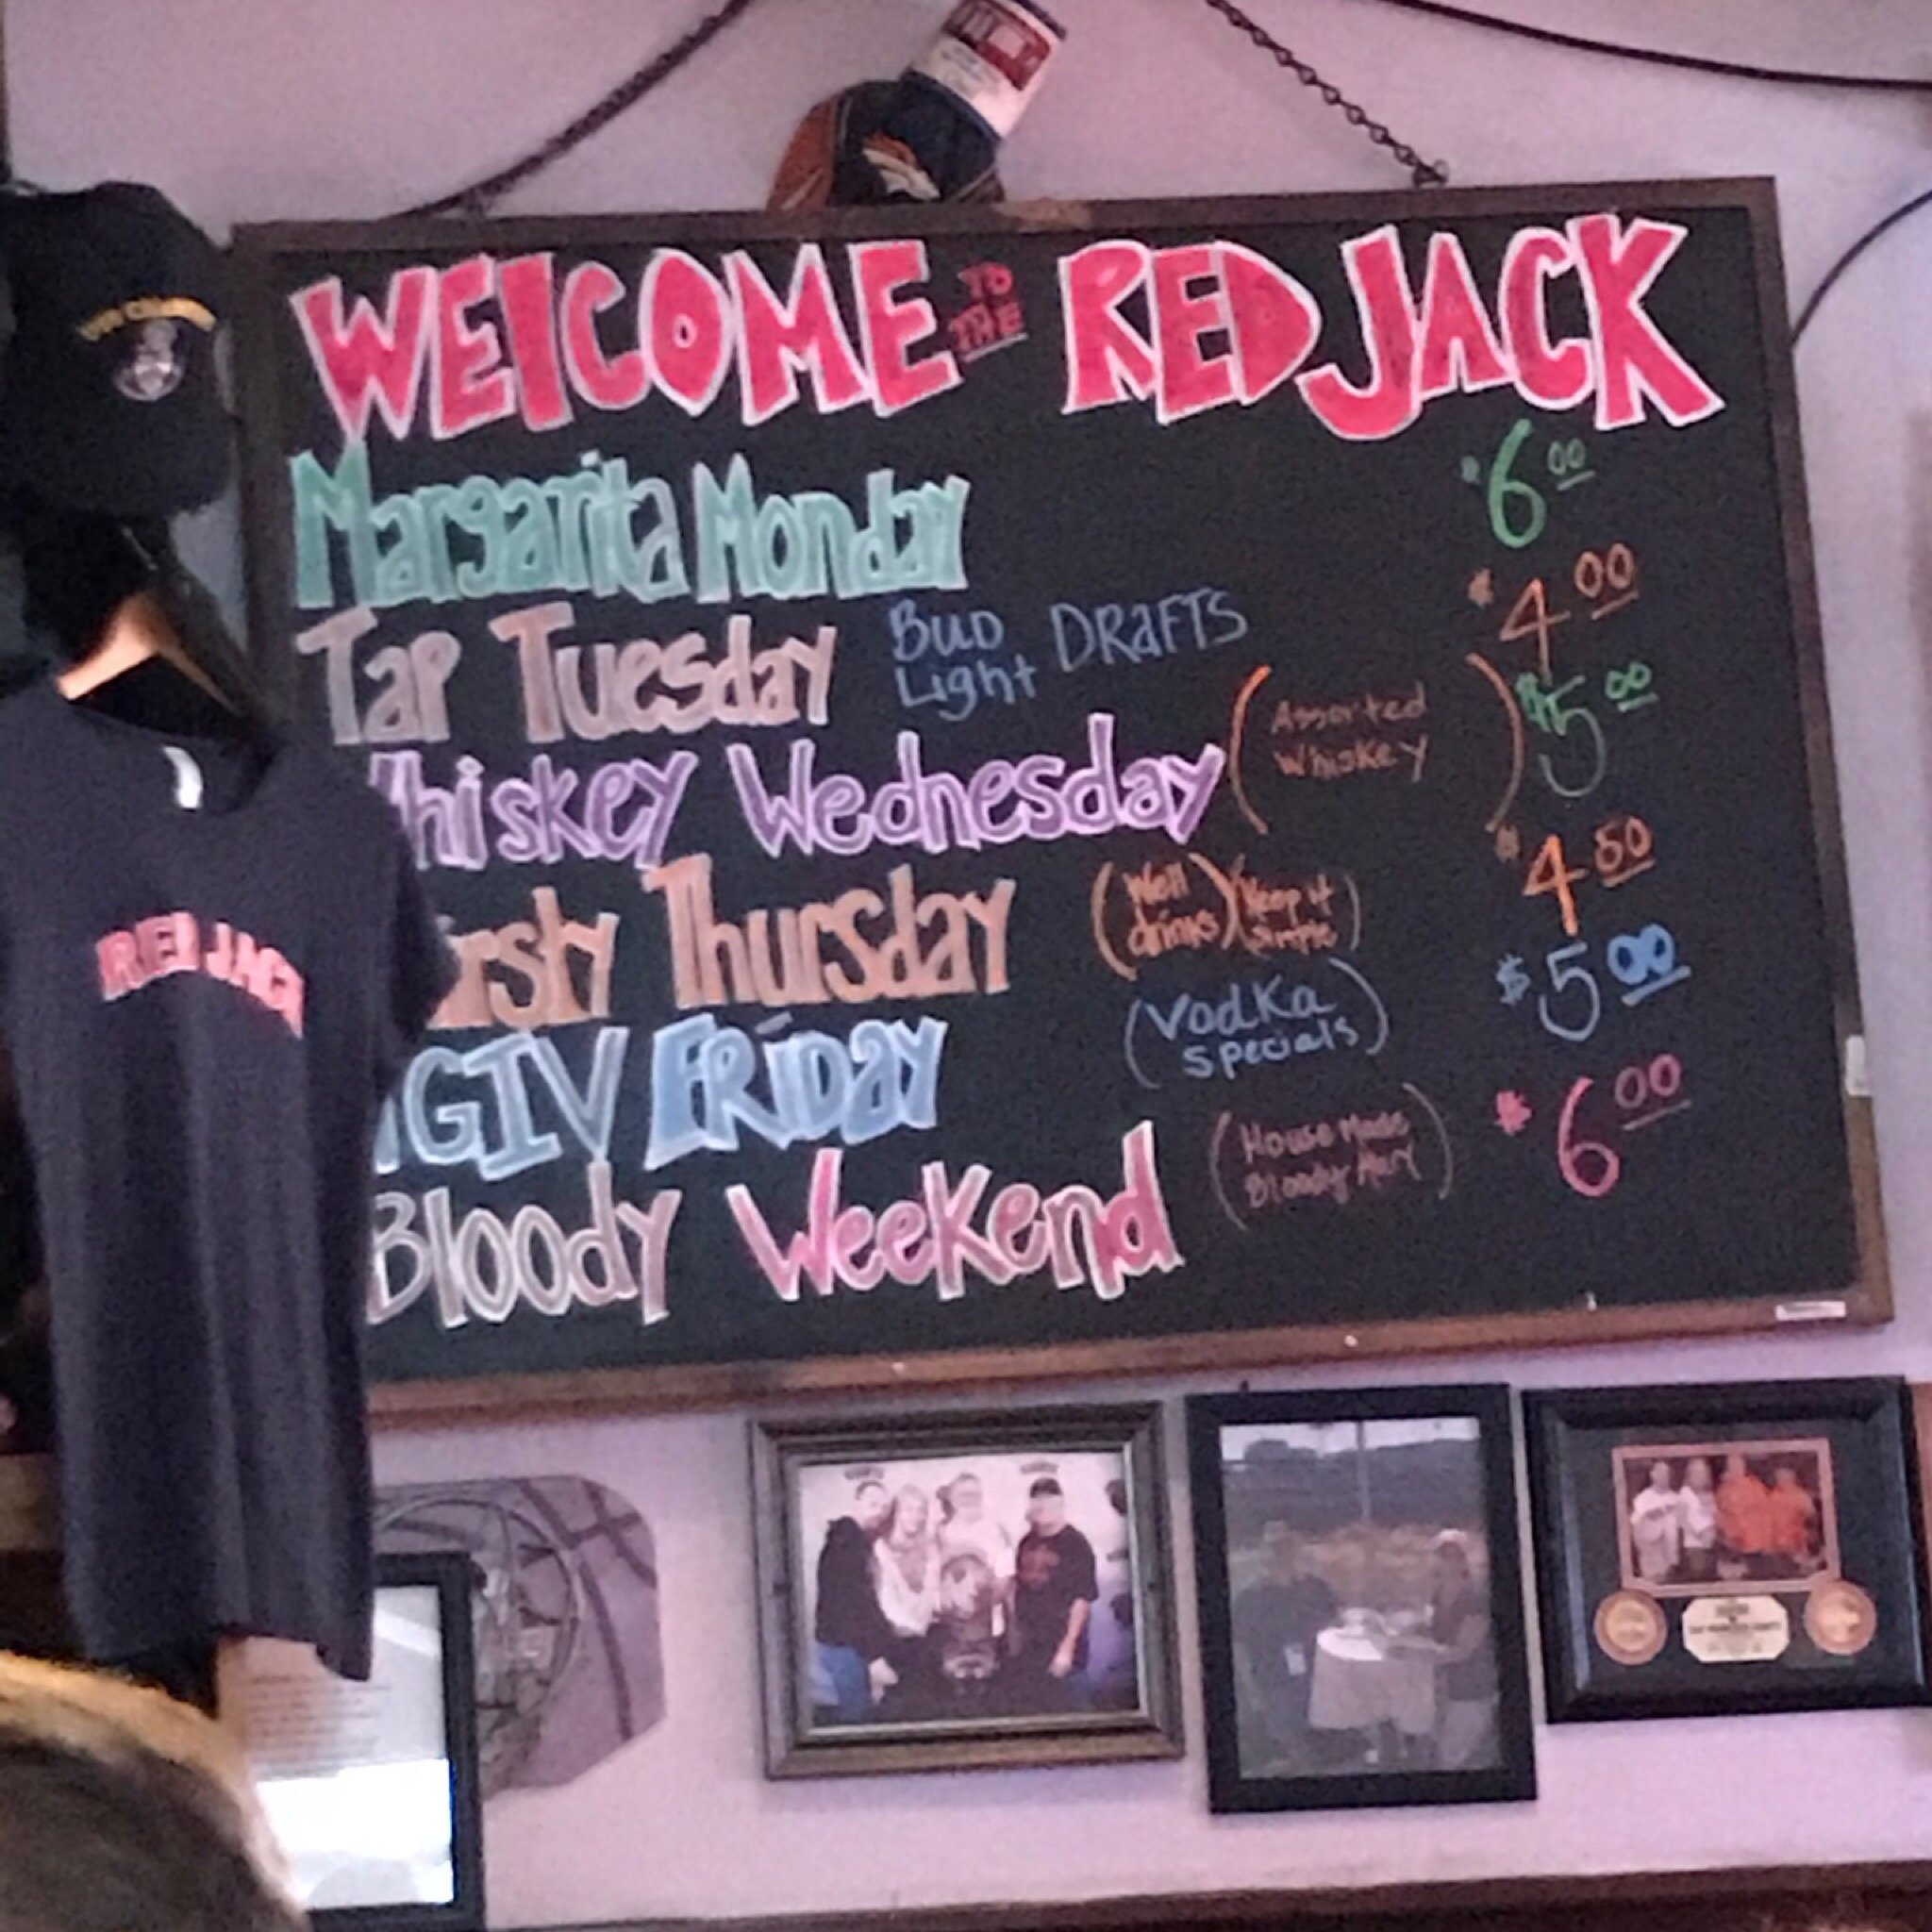 WElCOME TO THE RED JACK
Margarita Monday $6.00
Tap Tuesday Bud Light DRaFTS $4.00
Whiskey Wednesday (Assorted Whiskey) $5.00
irsty Thursday (Well drinks) (Keep it simple) $4.50
GIV FRiDay (Vodka Specials) $5.00
Bloody Weekend (House Made Bloody Mary) $6.00
RED JACK